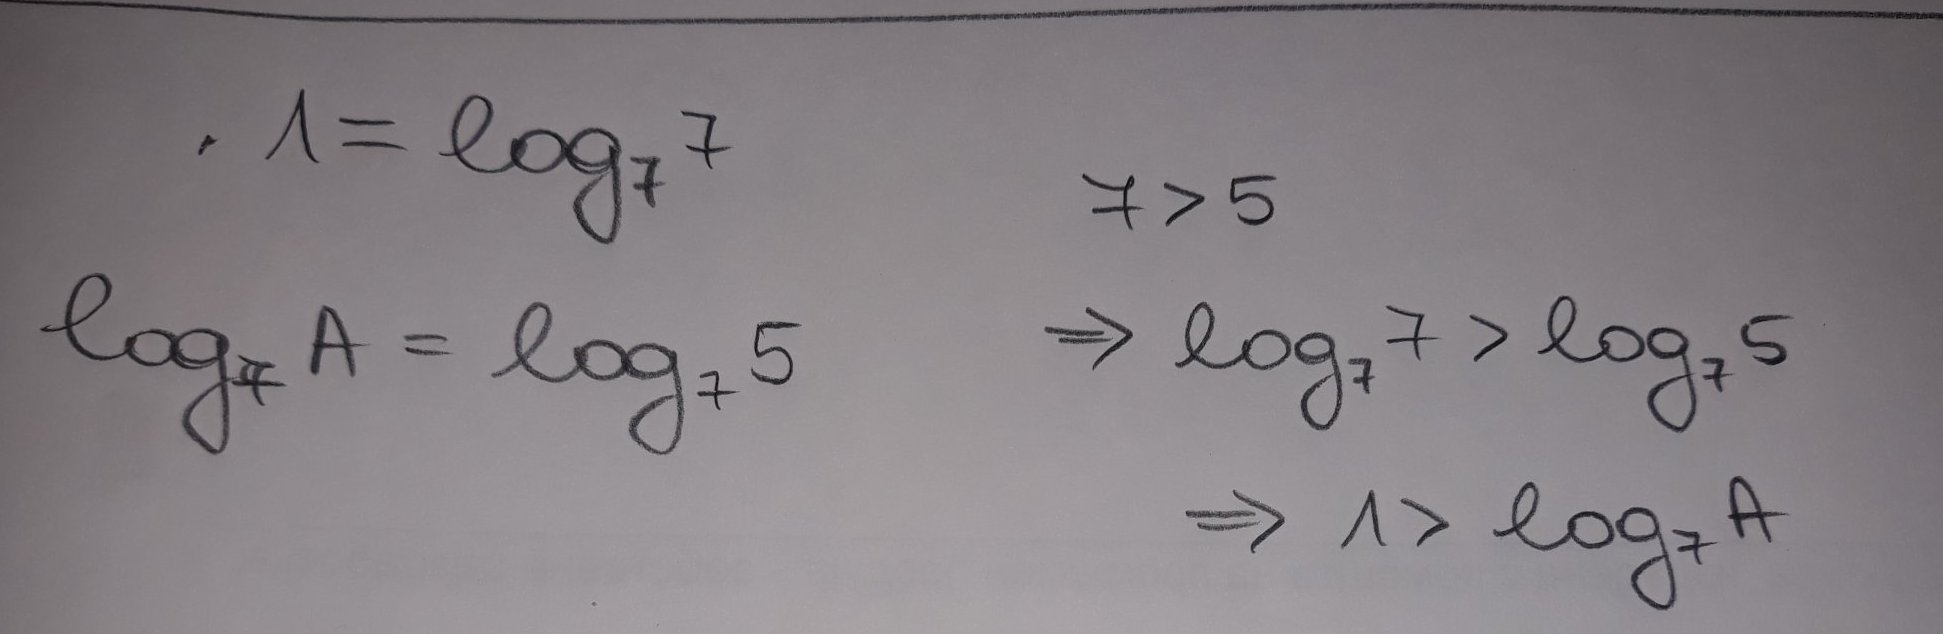 . 1 = log₇ 7
7 > 5
log₇ A = log₇ 5
⇒ log₇ 7 > log₇ 5
⇒ 1 > log₇ A